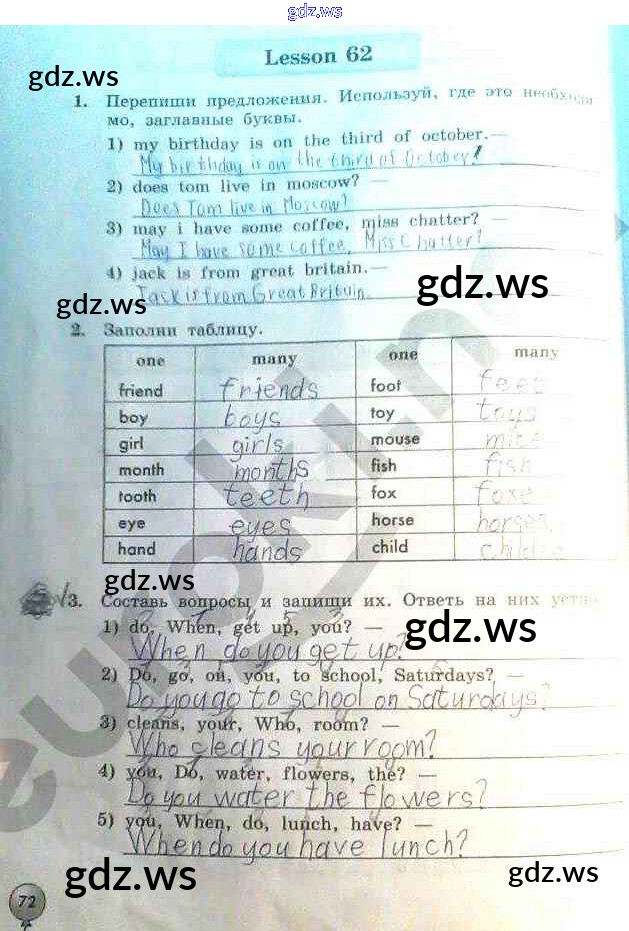 gdz.ws
Lesson 62
gdz.ws
1. Перепиши предложения. Используй, где это необходи
мо, заглавные буквы.
1) my birthday is on the third of october.—
My birthday is on the third of October!
2) does tom live in moscow? —
Does Tom live in Moscow?
3) may i have some coffee, miss chatter? —
May I have some coffee, Miss Chatter?
4) jack is from great britain.—
Jack is from Great Britain.
gdz.ws
gdz.ws
2. Заполни таблицу.
one many one many
friend friends foot feet
boy boys toy toys
girl girls mouse mice
month months fish fish
tooth teeth fox foxe
eye eyes horse horses
hand hands child child
gdz.ws
3. Составь вопросы и запиши их. Ответь на них устно
1) do, When, get up, you? —
gdz.ws
When do you get up?
2) Do, go, on, you, to school, Saturdays? —
Do you go to school on Saturdays?
3) cleans, your, Who, room? —
Who cleans your room?
4) you, Do, water, flowers, the? —
Do you water the flowers?
5) you, When, do, lunch, have? —
When do you have lunch?
gdz.ws
gdz.ws
72